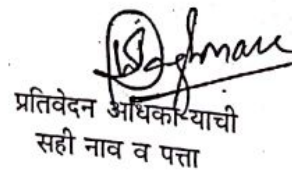 प्रतिवेदन अधिकाऱ्याची
सही नाव व पत्ता